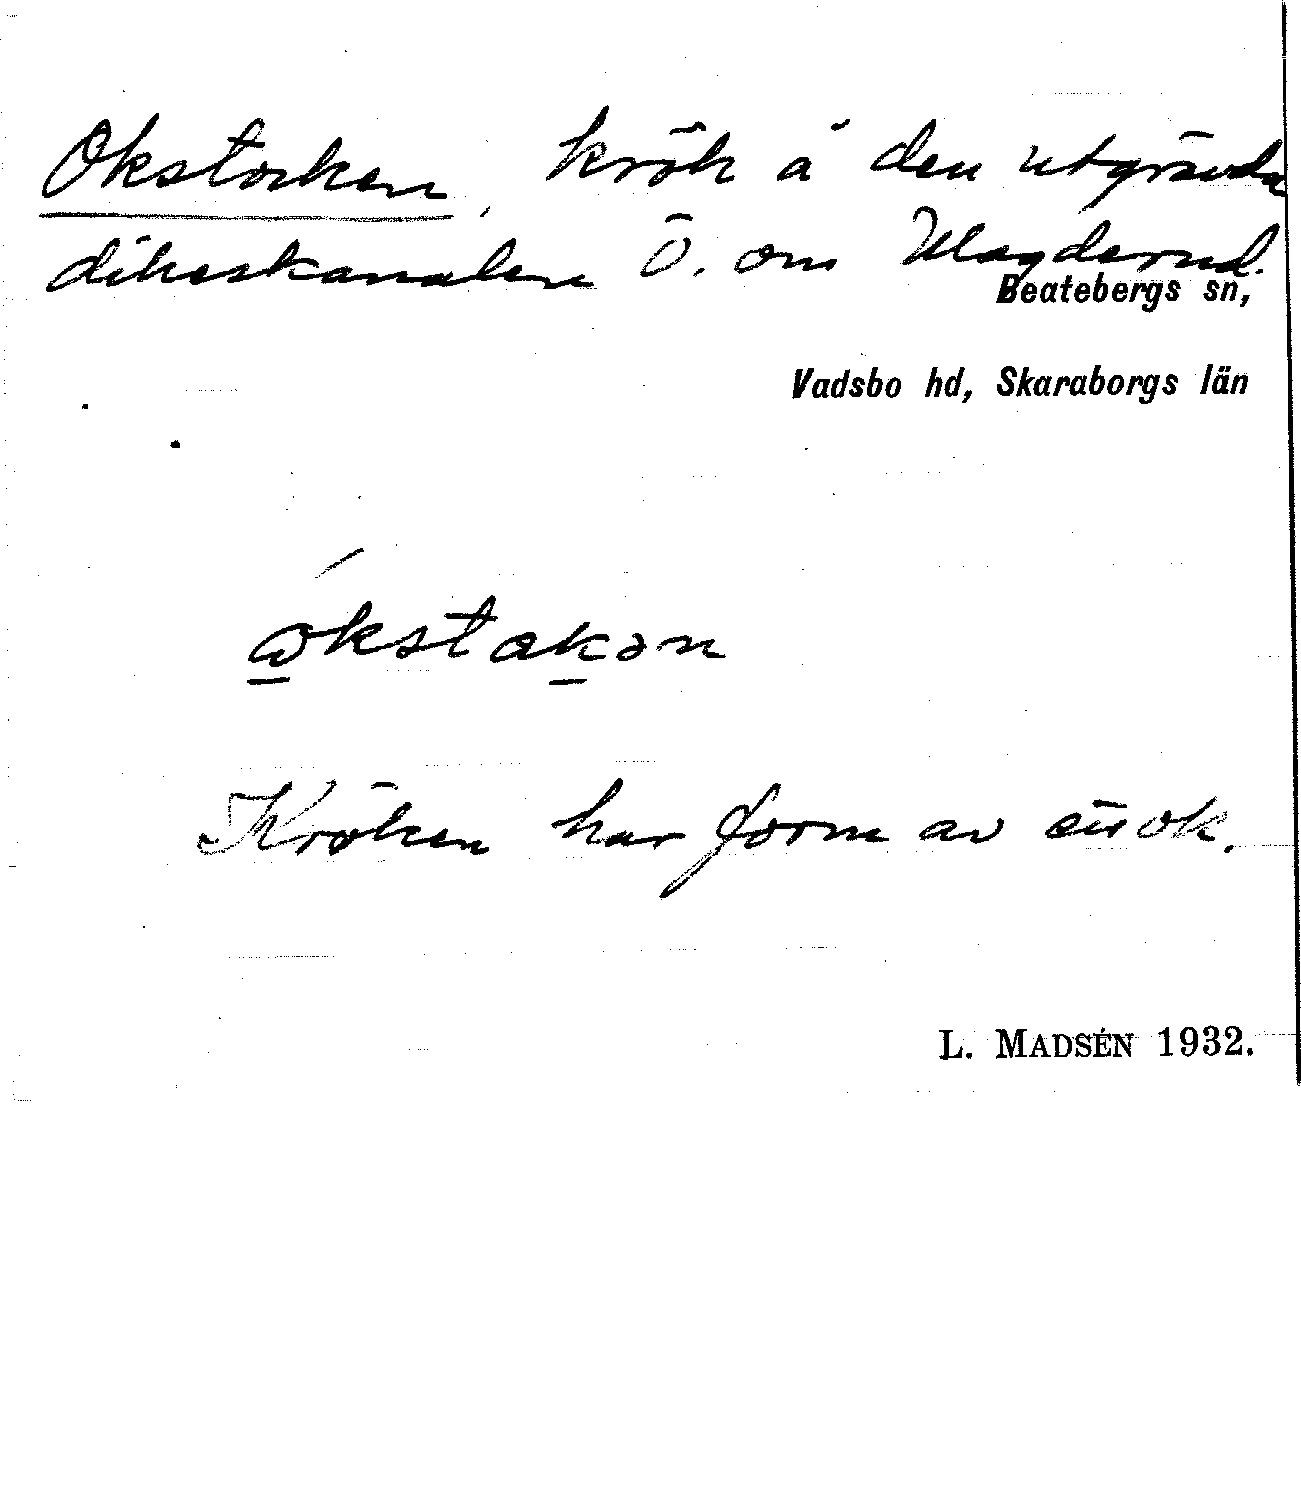 Okstocken, krök å den utgrävda
dikeskanalen Ö. om Magderud.
Beatebergs sn,
Vadsbo hd, Skaraborgs län
Kröken har form av ett ok.
L. MADSÉN 1932.